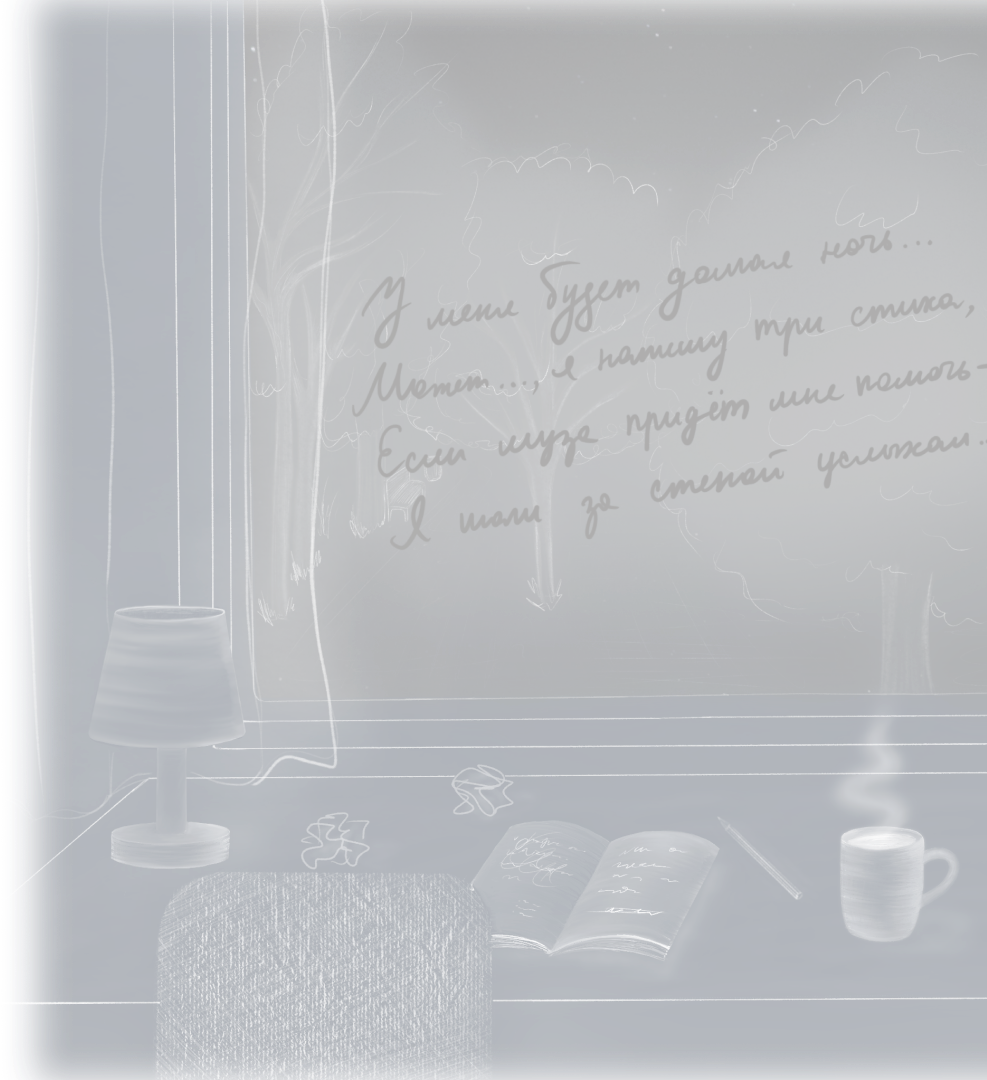 У меня будет долгая ночь...
Может..., я напишу три стиха,
Если муза придёт мне помочь-
Я шаги за стеной услышал..